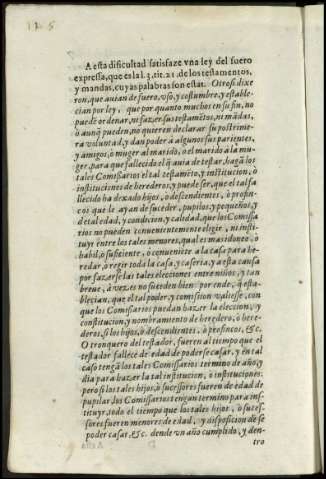 125
A esta dificultad satisfaze vna ley del fuero
expressa, que es la l. 3. tit. 21. de los testamentos,
y mandas, cuyas palabras son estas. Otrosi dixe
ron, que auian de fuero, vso, y costumbre, y estable-
cian por ley, que por quanto muchos en su fin, no
puedē ordenar, ni fazer sus testamētos, ni mādas,
ò aunq̃ pueden, no quieren declarar su postrime-
ra voluntad, y dan poder a algunos sus parientes,
y amigos, ò muger al marido, o el marido a la mu-
ger, para que fallecido el q̃ auia de testar, hagā los
tales Comissarios el tal testamēto, y institucion, ò
instituciones de herederos, y puede ser, que el tal fa
llecido ha dexado hijos, ò descendientes, ò profin-
cos que le ayan de suceder, pupilos, y pequeños, y
de tal edad, y condicion, y calidad, que los Comissa
rios no pueden conuenientemente elegir, ni insti-
tuyr entre los tales menores, qual es mas idoneo, ò
habil, ò suficiente, ò conueniēte a la casa para he-
redar, ò regir toda la casa, y caseria, y a esta causa
por fazerse las tales elecciones entre niños, y tan
breue, à vezes no suceden bien por ende, q̃ esta-
blecian, que el tal poder, y comission valiesse, con
que los Comissarios puedan hazer la eleccion, y
constitucion, y nombramiento de heredero, ò here-
deros, si los hijos, ò descendientes, ò profincos, &c.
O tronquero del testador, fueren al tiempo que el
testador fallecē de edad de poder se casar, y en tal
caso tengā los tales Comissarios termino de año, y
dia para hazer la tal institucion, ò instituciones:
pero si los tales hijos, ò sucessores fueren de edad de
pupilar, los Comissarios tengan termino para ins-
tituyr, todo el tiempo que los tales hijos, ò suces-
sores fueren menores de edad, y disposicion de se
poder casar, &c. dende vn año cumplido, y den-
tro